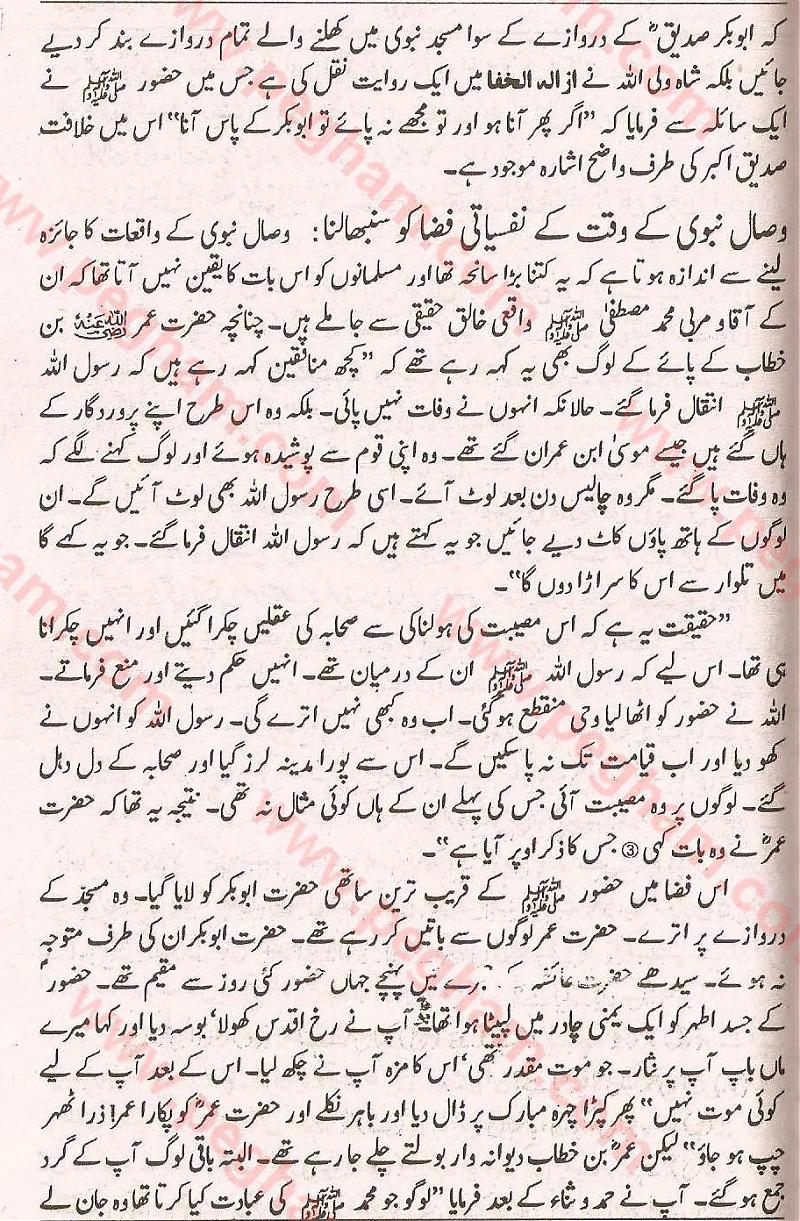 کہ ابوبکر صدیقؓ کے دروازے کے سوا مسجد نبوی میں کھلنے والے تمام دروازے بند کر دیے
جائیں بلکہ شاہ ولی اللہ نے ازالہ الخفا میں ایک روایت نقل کی ہے جس میں حضور ﷺ نے
ایک سائلہ سے فرمایا کہ ”اگر پھر آنا ہو اور تو مجھے نہ پائے تو ابوبکر کے پاس آنا“ اس میں خلافت
صدیق اکبر کی طرف واضح اشارہ موجود ہے۔
وصال نبوی کے وقت کے نفسیاتی فضا کو سنبھالنا: وصال نبوی کے واقعات کا جائزہ
لینے سے اندازہ ہوتا ہے کہ یہ کتنا بڑا سانحہ تھا اور مسلمانوں کو اس بات کا یقین نہیں آتا تھا کہ ان
کے آقا و مربی محمد مصطفیٰ ﷺ واقعی خالق حقیقی سے جا ملے ہیں۔ چنانچہ حضرت عمر رضی اللہ عنہ بن
خطاب کے پائے کے لوگ بھی یہ کہہ رہے تھے کہ ”کچھ منافقین کہہ رہے ہیں کہ رسول اللہ
ﷺ انتقال فرما گئے۔ حالانکہ انہوں نے وفات نہیں پائی۔ بلکہ وہ اس طرح اپنے پروردگار کے
ہاں گئے ہیں جیسے موسیٰ ابن عمران گئے تھے۔ وہ اپنی قوم سے پوشیدہ ہوئے اور لوگ کہنے لگے کہ
وہ وفات پا گئے۔ مگر وہ چالیس دن بعد لوٹ آئے۔ اسی طرح رسول اللہ بھی لوٹ آئیں گے۔ ان
لوگوں کے ہاتھ پاؤں کاٹ دیے جائیں جو یہ کہتے ہیں کہ رسول اللہ انتقال فرما گئے۔ جو یہ کہے گا
میں تلوار سے اس کا سر اڑا دوں گا“۔
”حقیقت یہ ہے کہ اس مصیبت کی ہولناکی سے صحابہ کی عقلیں چکرا گئیں اور انہیں چکرانا
ہی تھا۔ اس لیے کہ رسول اللہ ﷺ ان کے درمیان تھے۔ انہیں حکم دیتے اور منع فرماتے۔
اللہ نے حضور کو اٹھا لیا وحی منقطع ہو گئی۔ اب وہ کبھی نہیں اترے گی۔ رسول اللہ کو انہوں نے
کھو دیا اور اب قیامت تک نہ پا سکیں گے۔ اس سے پورا مدینہ لرز گیا اور صحابہ کے دل دہل
گئے۔ لوگوں پر وہ مصیبت آئی جس کی پہلے ان کے ہاں کوئی مثال نہ تھی۔ نتیجہ یہ تھا کہ حضرت
عمرؓ نے وہ بات کہی ③ جس کا ذکر اوپر آیا ہے“۔
اس فضا میں حضور ﷺ کے قریب ترین ساتھی حضرت ابوبکر کو لایا گیا۔ وہ مسجد کے
دروازے پر اترے۔ حضرت عمر لوگوں سے باتیں کر رہے تھے۔ حضرت ابوبکر ان کی طرف متوجہ
نہ ہوئے۔ سیدھے حضرت عائشہ میں پہنچے جہاں حضور کئی روز سے مقیم تھے۔ حضورؐ
کے جسد اطہر کو ایک یمنی چادر میں لپیٹا ہوا تھا۔ آپ نے رخ اقدس کھولا‘ بوسہ دیا اور کہا میرے
ماں باپ آپ پر نثار۔ جو موت مقدر تھی‘ اس کا مزہ آپ نے چکھ لیا۔ اس کے بعد آپ کے لیے
کوئی موت نہیں“ پھر کپڑا چہرہ مبارک پر ڈال دیا اور باہر نکلے اور حضرت عمرؓ کو پکارا عمر! ذرا ٹھہر
چپ ہو جاؤ“ لیکن عمرؓ بن خطاب دیوانہ وار بولتے چلے جا رہے تھے۔ البتہ باقی لوگ آپ کے گرد
جمع ہو گئے۔ آپ نے حمد و ثناء کے بعد فرمایا ”لوگو جو محمد ﷺ کی عبادت کیا کرتا تھا وہ جان لے
www.pegham.com